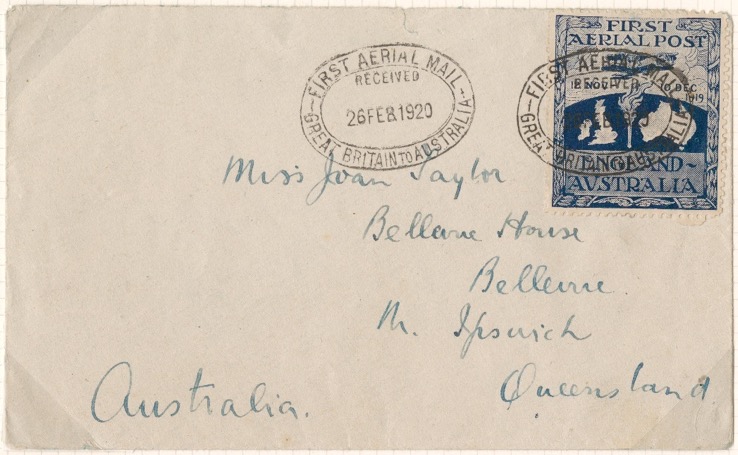 FIRST AERIAL MAIL
RECEIVED
26 FEB 1920
GREAT BRITAIN TO AUSTRALIA
FIRST
AERIAL POST
FIRST AERIAL MAIL
RECEIVED
12 NOV
10 DEC
1919
FEB 1920
GREAT BRITAIN TO AUSTRALIA
ENGLAND -
AUSTRALIA
Miss Joan Taylor
Bellevue House
Bellevue
Nr. Ipswich
Queensland
Australia.